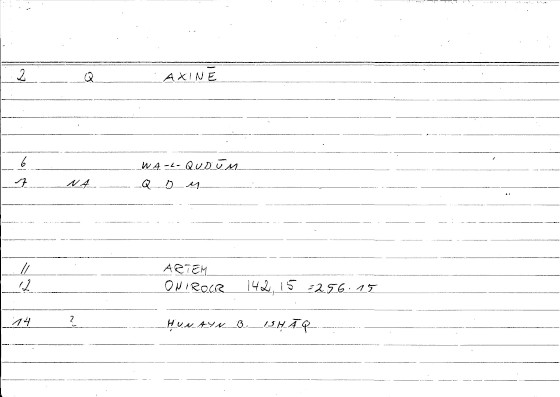 2 Q AXINĒ
6 WA-L-QUDŪM
7 NA Q D M
11 ARTEM
12 ONIROCR 142,15 =256.15
14 2 ḤUNAYN B. ISḤĀQ